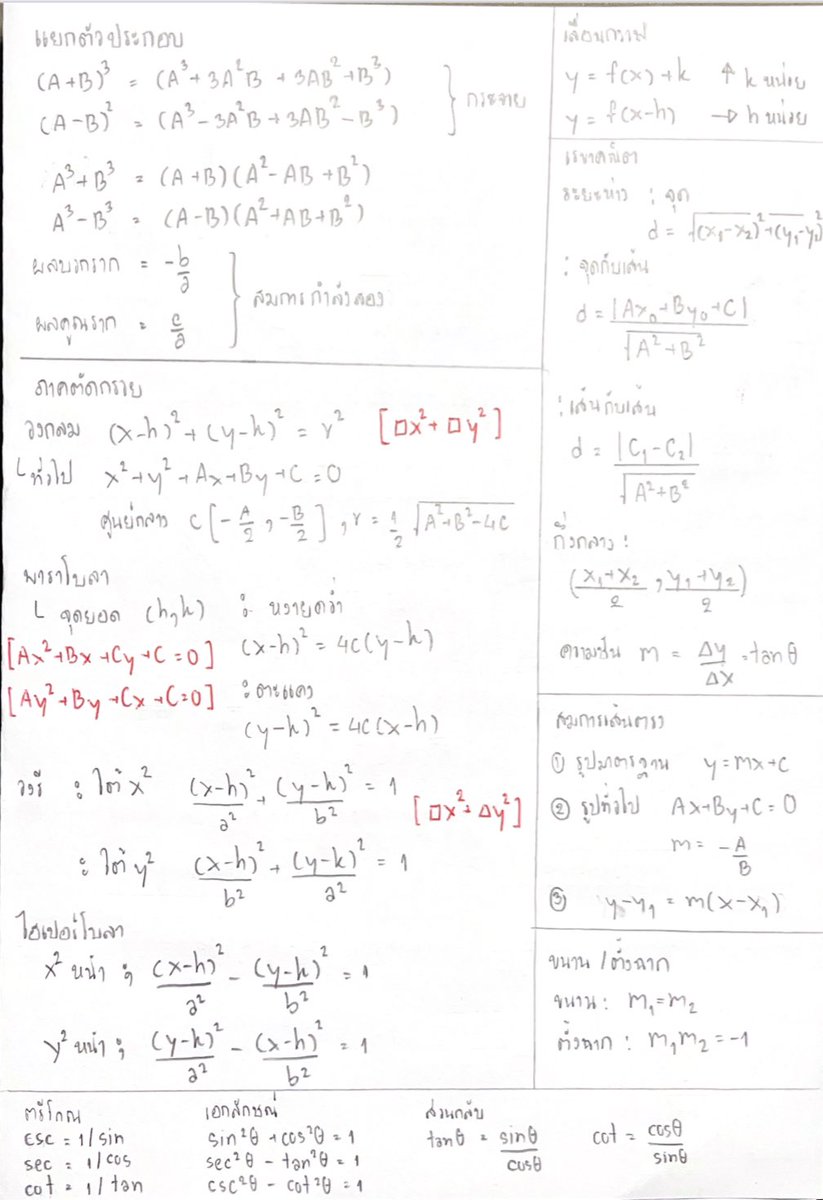 แยกตัวประกอบ
(A+B)³ = (A³+3A²B+3AB²+B³)
(A-B)² = (A³-3A²B+3AB²-B³)
กระจาย
A³+B³ = (A+B)(A²-AB+B²)
A³-B³ = (A-B)(A²+AB+B²)
ผลบวกราก = -b/a
ผลคูณราก = c/a
สมการกำลังสอง
ภาคตัดกรวย
วงกลม (x-h)²+(y-k)² = r² [□x²+□y²]
└ ทั่วไป x²+y²+Ax+By+C=0
ศูนย์กลาง C[-A/2, -B/2], r = 1/2 √(A²+B²-4C)
พาราโบลา
└ จุดยอด (h,k) : หงายคว่ำ
[Ax²+Bx+Cy+C=0] (x-h)² = 4c(y-k)
[Ay²+By+Cx+C=0] : ตะแคง
(y-k)² = 4c(x-h)
วงรี : ใต้ x² (x-h)²/a² + (y-k)²/b² = 1 [□x²+△y²]
: ใต้ y² (x-h)²/b² + (y-k)²/a² = 1
ไฮเปอร์โบลา
x² หน้า ; (x-h)²/a² - (y-k)²/b² = 1
y² หน้า ; (y-k)²/a² - (x-h)²/b² = 1
เลื่อนกราฟ
y = f(x)+k ↑ k หน่วย
y = f(x-h) → h หน่วย
เรขาคณิต
ระยะห่าง : จุด
d = √((x₁-x₂)²+(y₁-y₂)²)
: จุดกับเส้น
d = |Ax₀+By₀+C|/√(A²+B²)
: เส้นกับเส้น
d = |C₁-C₂|/√(A²+B²)
กึ่งกลาง :
((x₁+x₂)/2, (y₁+y₂)/2)
ความชัน m = Δy/Δx = tanθ
สมการเส้นตรง
① รูปมาตรฐาน y=mx+c
② รูปทั่วไป Ax+By+C=0
m = -A/B
③ y-y₁ = m(x-x₁)
ขนาน / ตั้งฉาก
ขนาน : m₁=m₂
ตั้งฉาก : m₁m₂ = -1
ตรีโกณ
csc = 1/sin
sec = 1/cos
cot = 1/tan
เอกลักษณ์
sin²θ + cos²θ = 1
sec²θ - tan²θ = 1
csc²θ - cot²θ = 1
ส่วนกลับ
tanθ = sinθ/cosθ cot = cosθ/sinθ